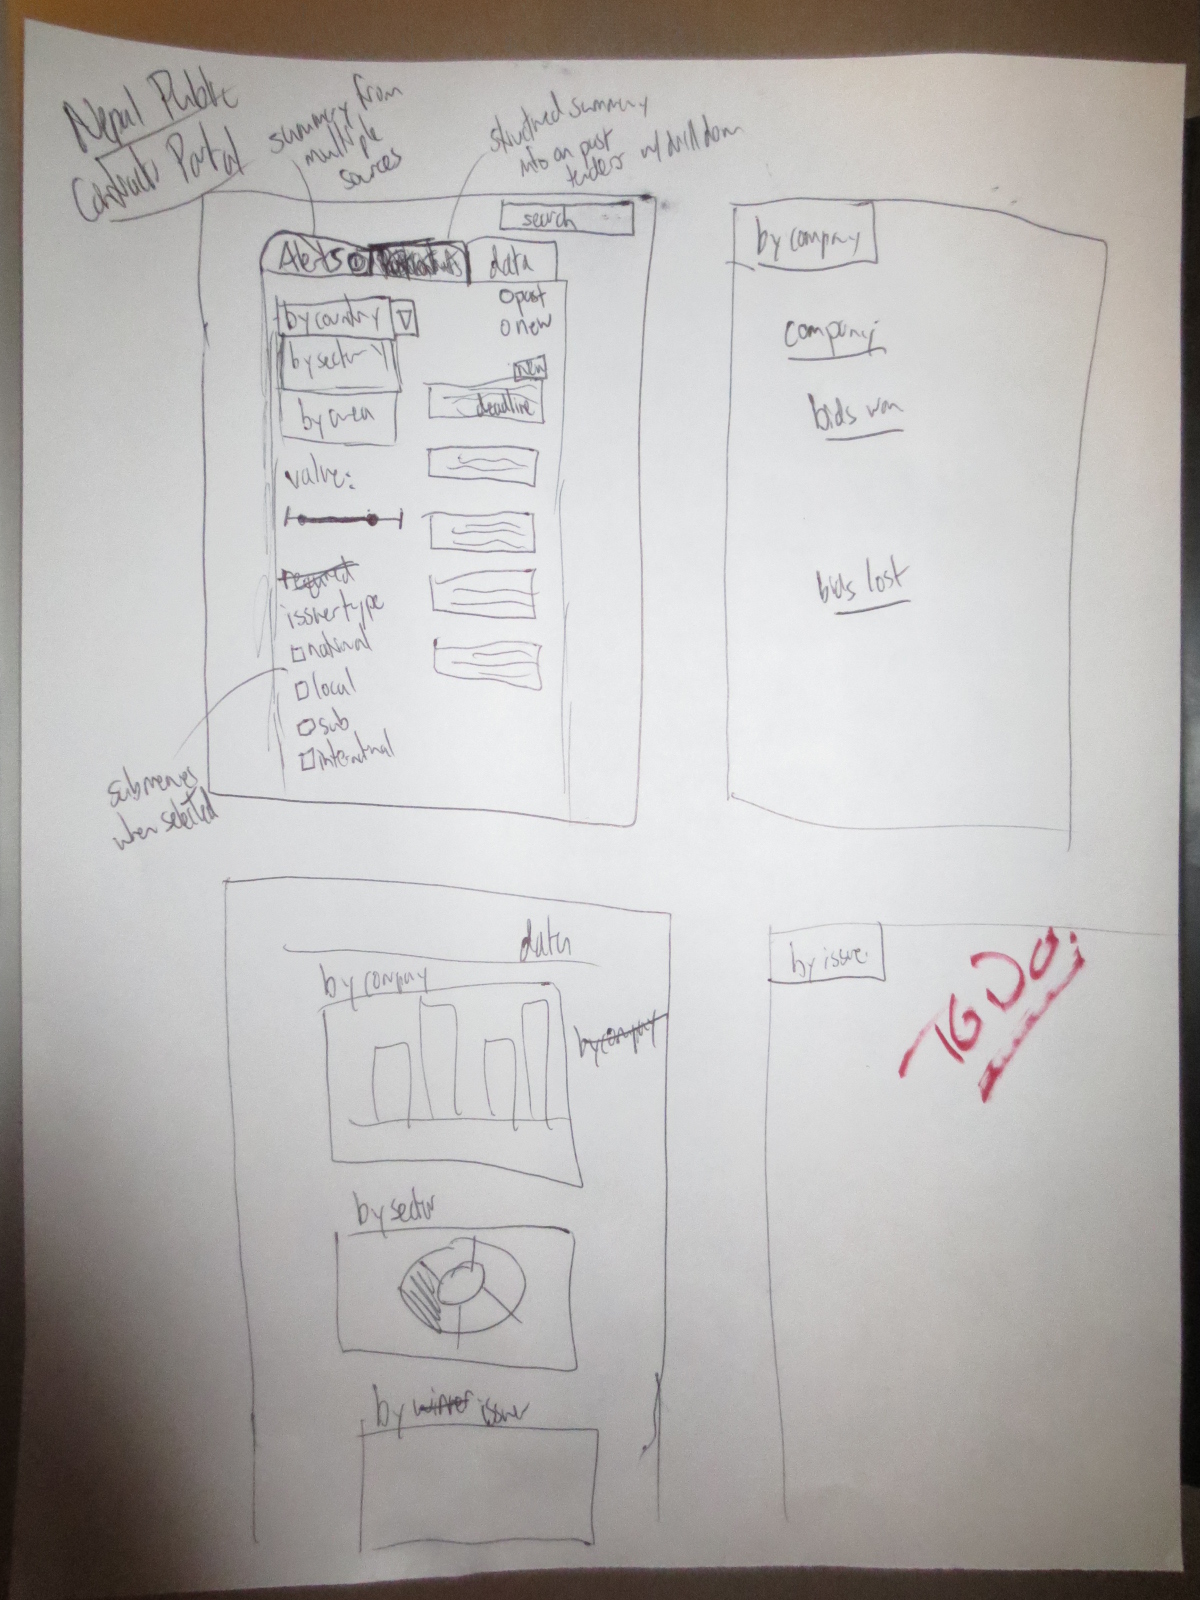 Nepal Public
Contracts Portal
summary from
multiple
sources
structured summary
into on past
tenders w/ drill down
search
Alerts
data
by country
by sector
by area
O past
O new
New
deadline
value:
required
issuer type
national
local
sub
international
submenues
when selected
by company
company
bids won
bids lost
data
by company
by company
by sector
by winner issuer
by issuer
TO DO.